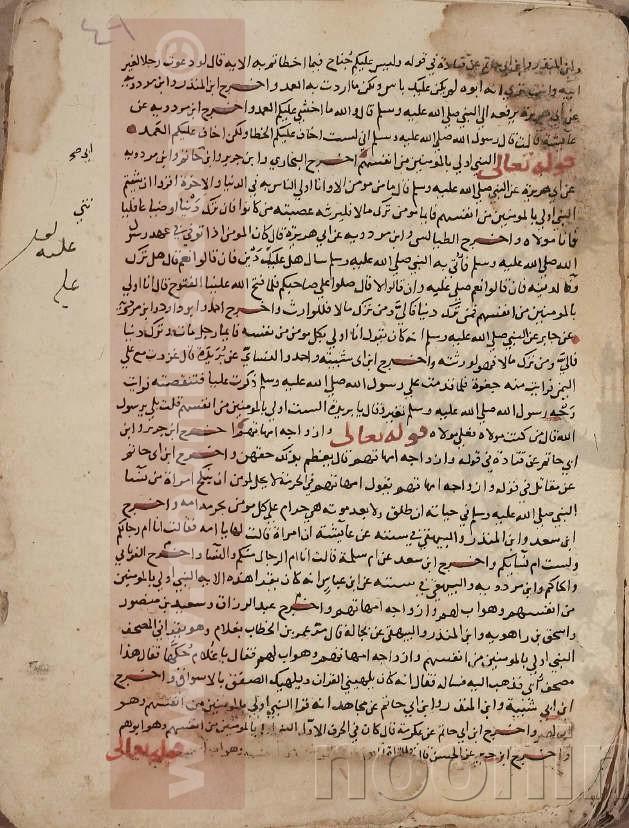 ٤٩
وابن المنذر وابن ابي حاتم عن قتادة في قوله وليس عليكم جناح فيما اخطاتم به الايه قال لو دعوت رجلا لغير
ابيه وانت ترى انه ابوه لم يكن عليك باس ولكن ما اردت به العمد واخرج ابن المنذر وابن مردويه
عن ابي هريرة يرفعه الى النبي صلى الله عليه وسلم قال والله ما اخشى عليكم العمد واخرج ابن مردويه عن
عايشة قالت قال رسول الله صلى الله عليه وسلم اني لست اخاف عليكم الخطا ولكن اخاف عليكم العمد
قوله تعالى النبي اولى بالمومنين من انفسهم اخرج البخاري وابن جرير وابن ابي حاتم وابن مردويه
عن ابي هريرة عن النبي صلى الله عليه وسلم قال ما من مومن الا وانا اولى الناس به في الدنيا والاخرة اقروا ان شيتم
النبي اولى بالمومنين من انفسهم فايما مومن ترك مالا فليرثه عصبته من كانوا فان ترك دينا او ضياعا فلياتني
فانا مولاه واخرج الطيالسي وابن مردويه عن ابي هريرة قال كان المومن اذا توفى في عهد رسول
الله صلى الله عليه وسلم فاتى به النبي صلى الله عليه وسلم سال هل عليه دين فان قالوا نعم قال هل ترك
وفا لدينه فان قالوا نعم صلى عليه وان قالوا لا قال صلوا على صاحبكم فلما فتح الله علينا الفتوح قال انا اولى
بالمومنين من انفسهم فمن ترك دينا فالي ومن ترك مالا فللوارث واخرج احمد وابو داود وابن مردويه
عن جابر عن النبي صلى الله عليه وسلم انه كان يقول انا اولى بكل مومن من نفسه فايما رجل مات وترك دينا
فالي ومن ترك مالا فهو لورثته واخرج ابن ابي شيبة واحمد والنسائي عن بريدة قال غزوت مع علي
اليمن فرايت منه جفوة فلما قدمت على رسول الله صلى الله عليه وسلم ذكرت عليا فتنقصته فرايت
وجه رسول الله صلى الله عليه وسلم تغير وقال يا بريدة الست اولى بالمومنين من انفسهم قلت بلى يرسول
الله قال من كنت مولاه فعلي مولاه قوله تعالى وازواجه امهاتهم اخرج ابن جرير وابن
ابي حاتم عن قتادة في قوله وازواجه امهاتهم قال يعظم بذلك حقهن واخرج ابن ابي حاتم
عن مقاتل في قوله وازواجه امهاتهم يقول امهاتهم في الحرمة لا يحل لمومن ان ينكح امراة من نسا
النبي صلى الله عليه وسلم في حياته ان طلق ولا بعد موته هي حرام على كل مومن كحرمة امه واخرج
ابن سعد وابن المنذر والبيهقي في سننه عن عايشة ان امراة قالت لها يا امه فقالت انا ام رجالكم
ولست ام نسايكم واخرج ابن سعد عن ام سلمة قالت انا ام الرجال منكم والنسا واخرج الفريابي
والحاكم وابن مردويه والبيهقي في سننه عن ابن عباس انه كان يقرا هذه الاية النبي اولى بالمومنين
من انفسهم وهو اب لهم وازواجه امهاتهم واخرج عبد الرزاق وسعيد بن منصور
واسحق بن راهويه وابن المنذر والبيهقي عن بجالة قال مر عمر بن الخطاب بغلام وهو يقرا في المصحف
النبي اولى بالمومنين من انفسهم وازواجه امهاتهم وهو اب لهم فقال يا غلام حكها فقال هذا
مصحف ابي فذهب اليه فساله فقال انه كان يلهيني القران ويلهيك الصفق بالاسواق واخرج
ابن ابي شيبة وابن المنذر وابن ابي حاتم عن مجاهد انه قرا النبي اولى بالمومنين من انفسهم وهو
اب لهم واخرج ابن ابي حاتم عن عكرمة قال كان في الحرف الاول النبي اولى بالمومنين من انفسهم وهو ابوهم
واخرج ابن جرير عن الحسن قال في القراة الاولى وهو اب لهم قوله تعالى